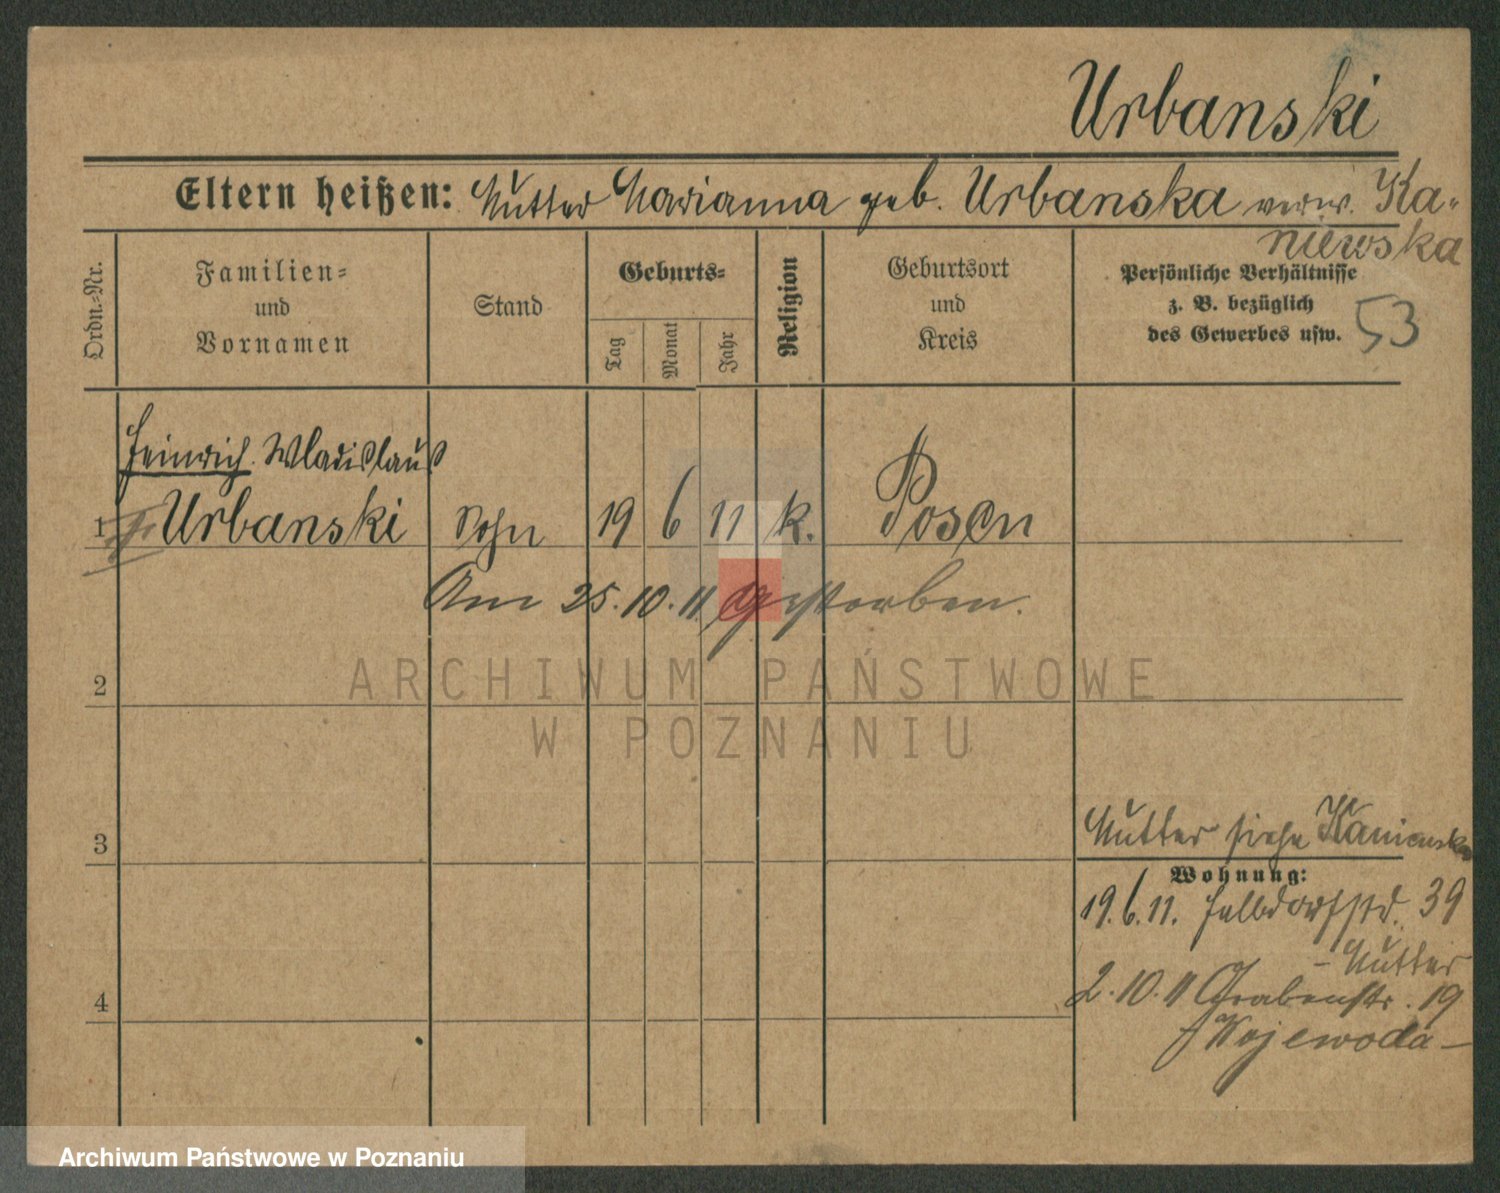 Urbanski
Eltern heißen: Mutter Marianna geb. Urbanska verw. Ka-
niewska
Ordn.-Nr.
Familien-
und
Vornamen
Stand
Geburts-
Tag
Monat
Jahr
Religion
Geburtsort
und
Kreis
Persönliche Verhältnisse
z. B. bezüglich
des Gewerbes usw.
53
Heinrich Wladislaus
1 Urbanski Sohn 19 6 11 k. Posen
Am 25.10.11 gestorben.
ARCHIWUM PAŃSTWOWE
W POZNANIU
2
3
Mutter siehe Kaniewska
Wohnung:
19.6.11. Halbdorfstr. 39
- Mutter
4
2.10.11 Grabenstr. 19
Wojewoda -
Archiwum Państwowe w Poznaniu